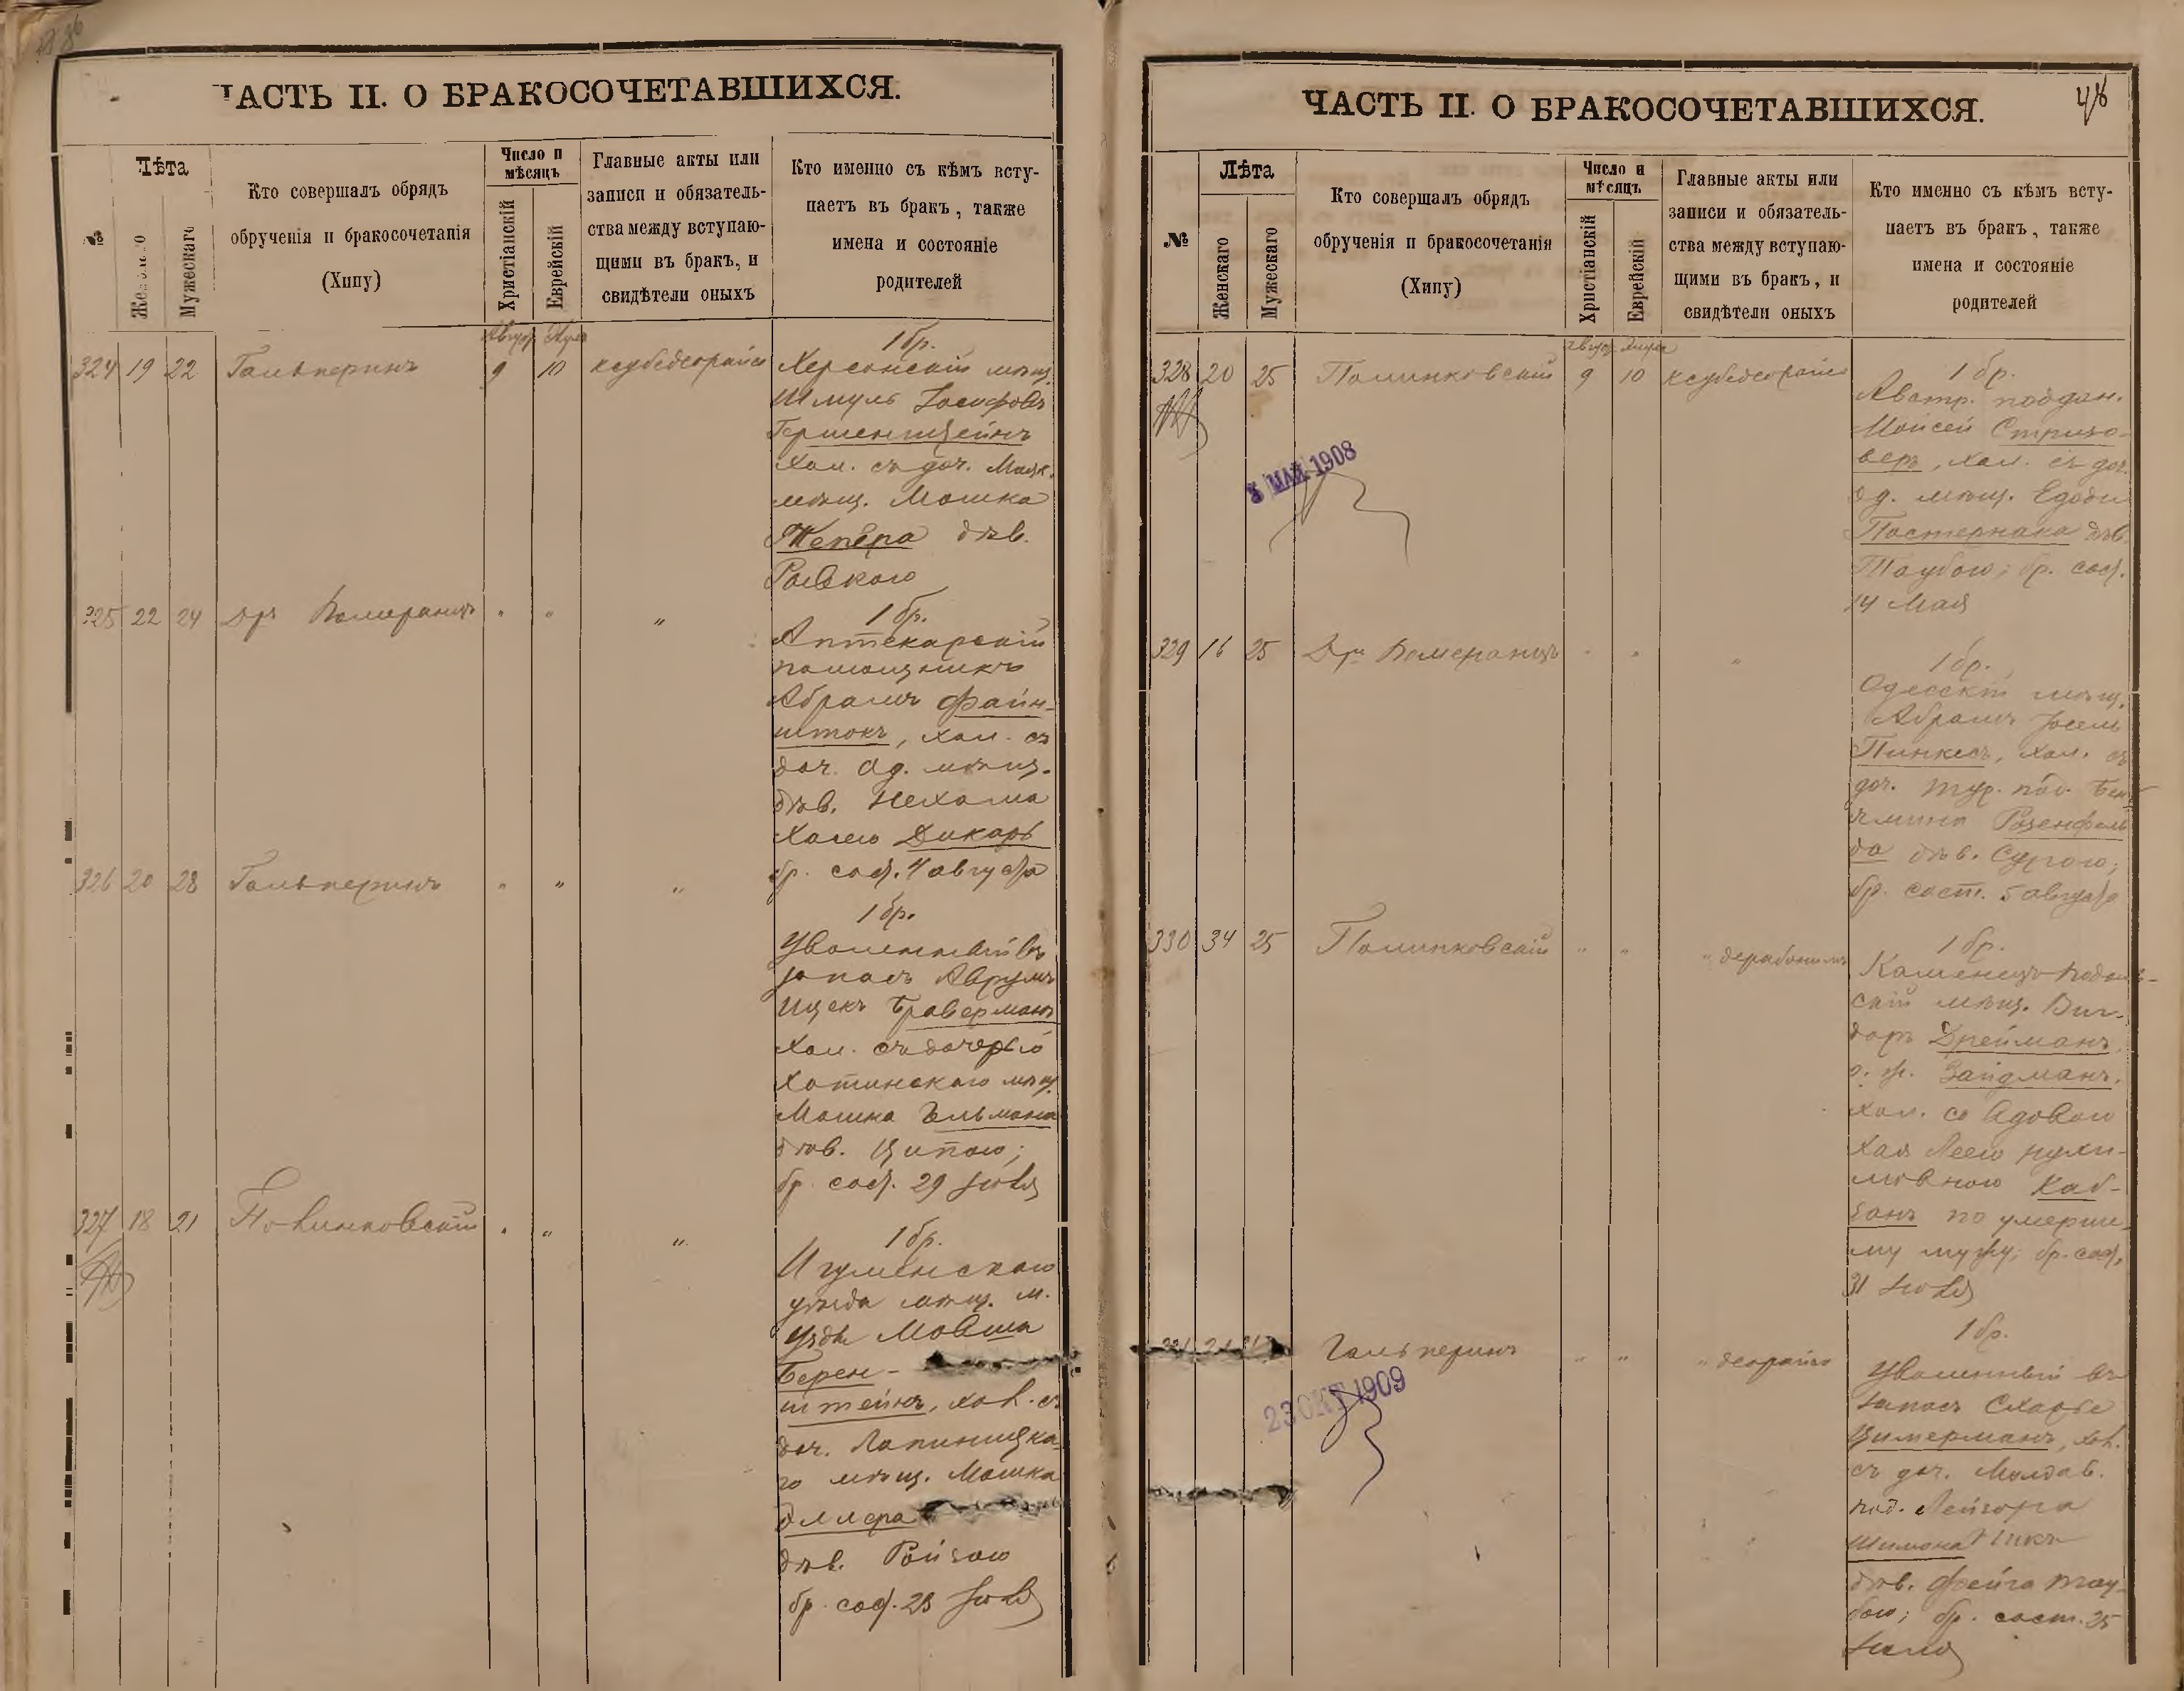 ЧАСТЬ II. О БРАКОСОЧЕТАВШИХСЯ.
№
Лѣта
Женскаго
Мужескаго
Кто совершалъ обрядъ
обрученія и бракосочетанія
(Хипу)
Число и
мѣсяцъ
Христіанскій
Еврейскій
Главные акты или
записи и обязатель-
ства между вступаю-
щими въ бракъ, и
свидѣтели оныхъ
Кто именно съ кѣмъ всту-
паетъ въ бракъ, также
имена и состояніе
родителей
324 19 22 Гальперинъ 9 10
1 бр.
Херсонскій мѣщ.
Шмуль Іосифовъ
Гершенщейнъ
хол. съ доч. Маяк.
мѣщ. Мошка
Тепера дѣв.
325 22 24 Дръ Померанцъ " " "
1 бр.
Аптекарскій
помощникъ
Абрамъ Файн-
штокъ, хол. съ
доч. од. мѣщ.
дѣв. Нехама
Хасею Дикарь
бр. сост. 4 августа
326 20 28 Гальперинъ " " "
1 бр.
Уволенный въ
запасъ Аврумъ
Ицекъ Браверманъ
хол. съ дочерью
Хотинскаго мѣщ.
Мошка Гельмана
дѣв. Ципою;
бр. сост. 29 Іюля
327 18 21 Полинковскій " " "
1 бр.
Игуменскаго
уѣзда мѣщ. м.
Узды Мовша
Берен-
штейнъ, хол. съ
доч. Лапиницка-
го мѣщ. Мошка
дѣв. Ройзою
бр. сост. 23 Іюля
ЧАСТЬ II. О БРАКОСОЧЕТАВШИХСЯ.
№
Лѣта
Женскаго
Мужескаго
Кто совершалъ обрядъ
обрученія и бракосочетанія
(Хипу)
Число и
мѣсяцъ
Христіанскій
Еврейскій
Главные акты или
записи и обязатель-
ства между вступаю-
щими въ бракъ, и
свидѣтели оныхъ
Кто именно съ кѣмъ всту-
паетъ въ бракъ, также
имена и состояніе
родителей
328 20 25 Полинковскій 9 10
8 МАЙ 1908
1 бр.
Австр. поддан.
Мойсей Стризо-
веръ, хол. съ доч.
од. мѣщ.
Пастернака дѣв.
Таубою; бр. сост.
14 Мая
329 16 25 Дръ Померанцъ " " "
1 бр.
Одесскій мѣщ.
Абрамъ Іосель
Пинкесъ, хол. съ
доч. тур. под. Бен-
ямина Розенфель-
да дѣв. Сурою;
бр. сост. 5 августа
330 34 25 Полинковскій " "
1 бр.
Каменецъ-Подоль-
скій мѣщ. Виг-
доръ Дрейманъ,
Зайдманъ.
хол. со вдовою
Хая Леею Нухи-
мовною Каб-
занъ по умерше-
му мужу; бр. сост.
31 Іюля
Гальперинъ " "
23 ОКТ 1909
1 бр.
Уволенный въ
запасъ Схарье
Цимерманъ, хол.
съ доч. Молдав.
под. Лейзора
дѣв. Фейга Тау-
бою; бр. сост. 25
Іюля